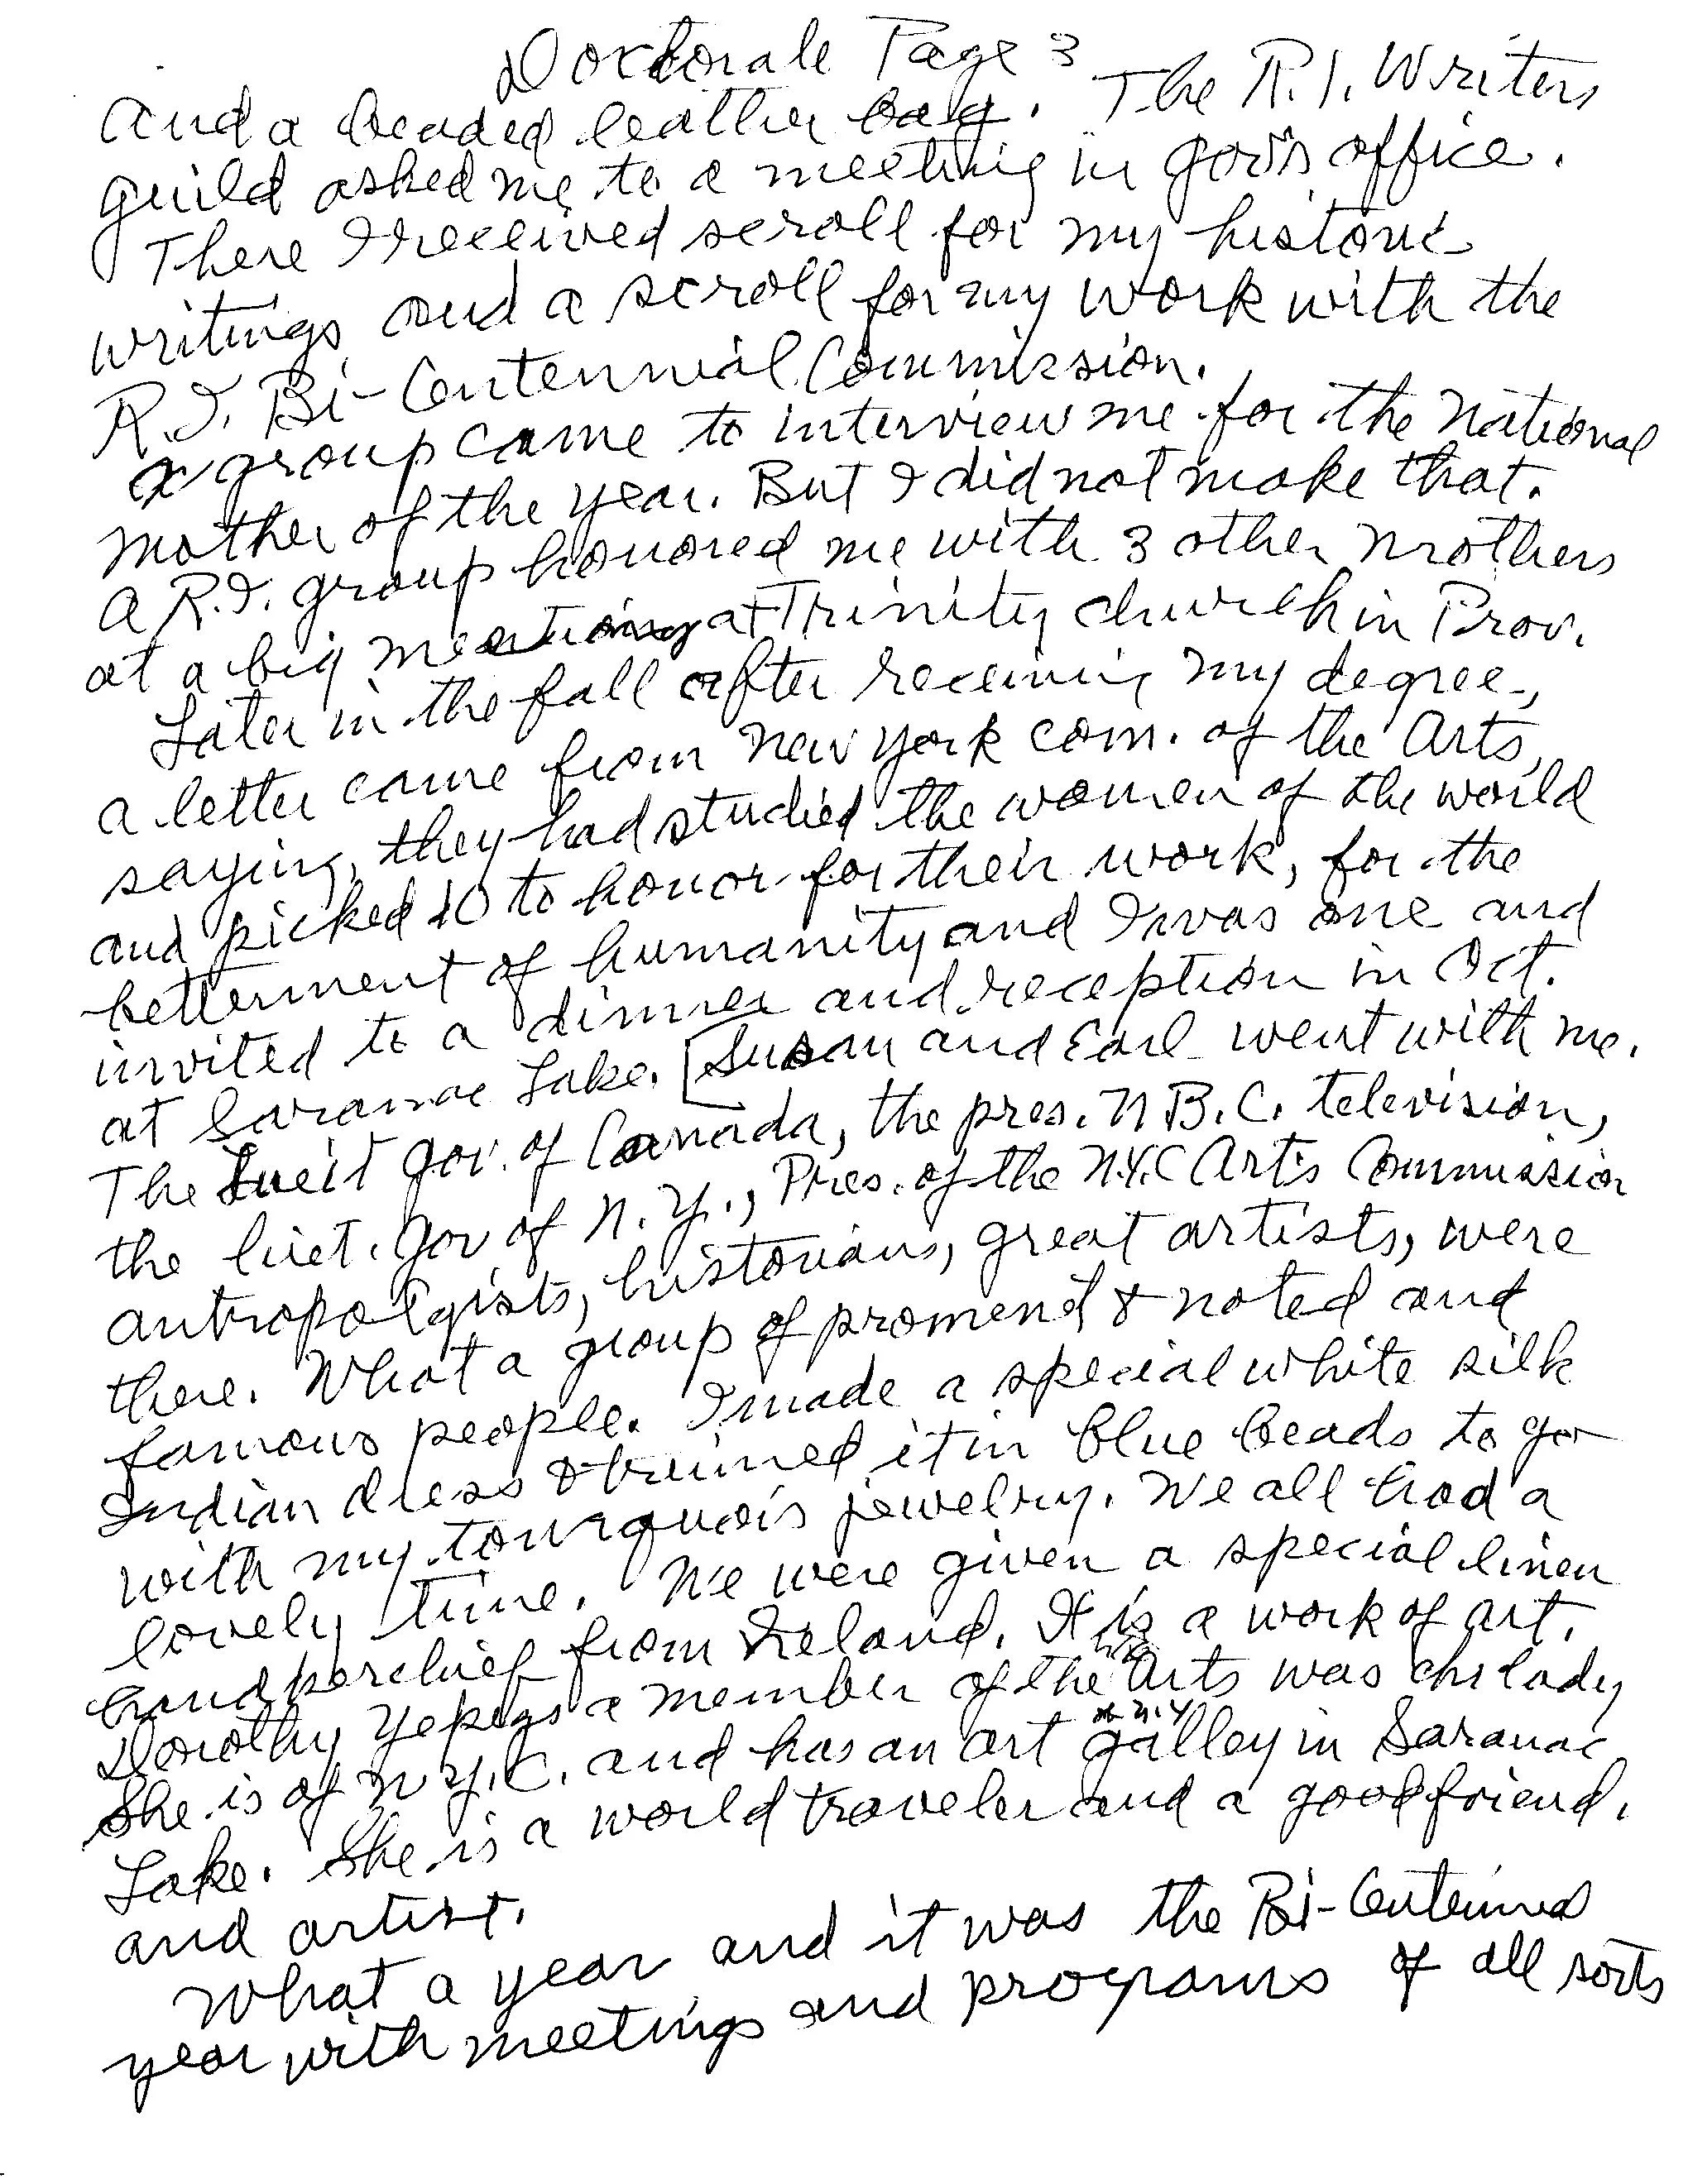 Doctorale Page 3
and a beaded leather bag. The R.I. Writers
guild asked me to a meeting in gov's office.
There I received scroll for my historic
writings and a scroll for my work with the
R.I. Bi-Centennial Commission.
a group came to interview me for the national
mother of the year. But I did not make that.
a R.I. group honored me with 3 other mothers
at a big meeting at Trinity church in Prov.
Later in the fall after receiving my degree,
a letter came from New York com. of the Arts,
saying, they had studied the women of the world
and picked 10 to honor for their work, for the
betterment of humanity and I was one and
invited to a dinner and reception in Oct.
at Saranac Lake. [Susan and Earl went with me.
The Lueit gov. of Canada, the pres. N.B.C. television,
the liet. gov of N.Y., Pres. of the N.Y.C Arts Commission
antropolgists, historians, great artists, were
there. What a group of promend & noted and
famous people. I made a special white silk
Indian dress & trimed it in blue beads to go
with my tourquois jewelry. We all had a
lovely time. We were given a special linen
handkerchief from Ireland. It is a work of art.
Dorothy a member of the Arts was chslady
She is of N.Y.C. and has an art galley in Saranac
Lake. She is a world traveler and a good friend,
and artist.
What a year and it was the Bi-Centennial
year with meetings and programs of all sorts